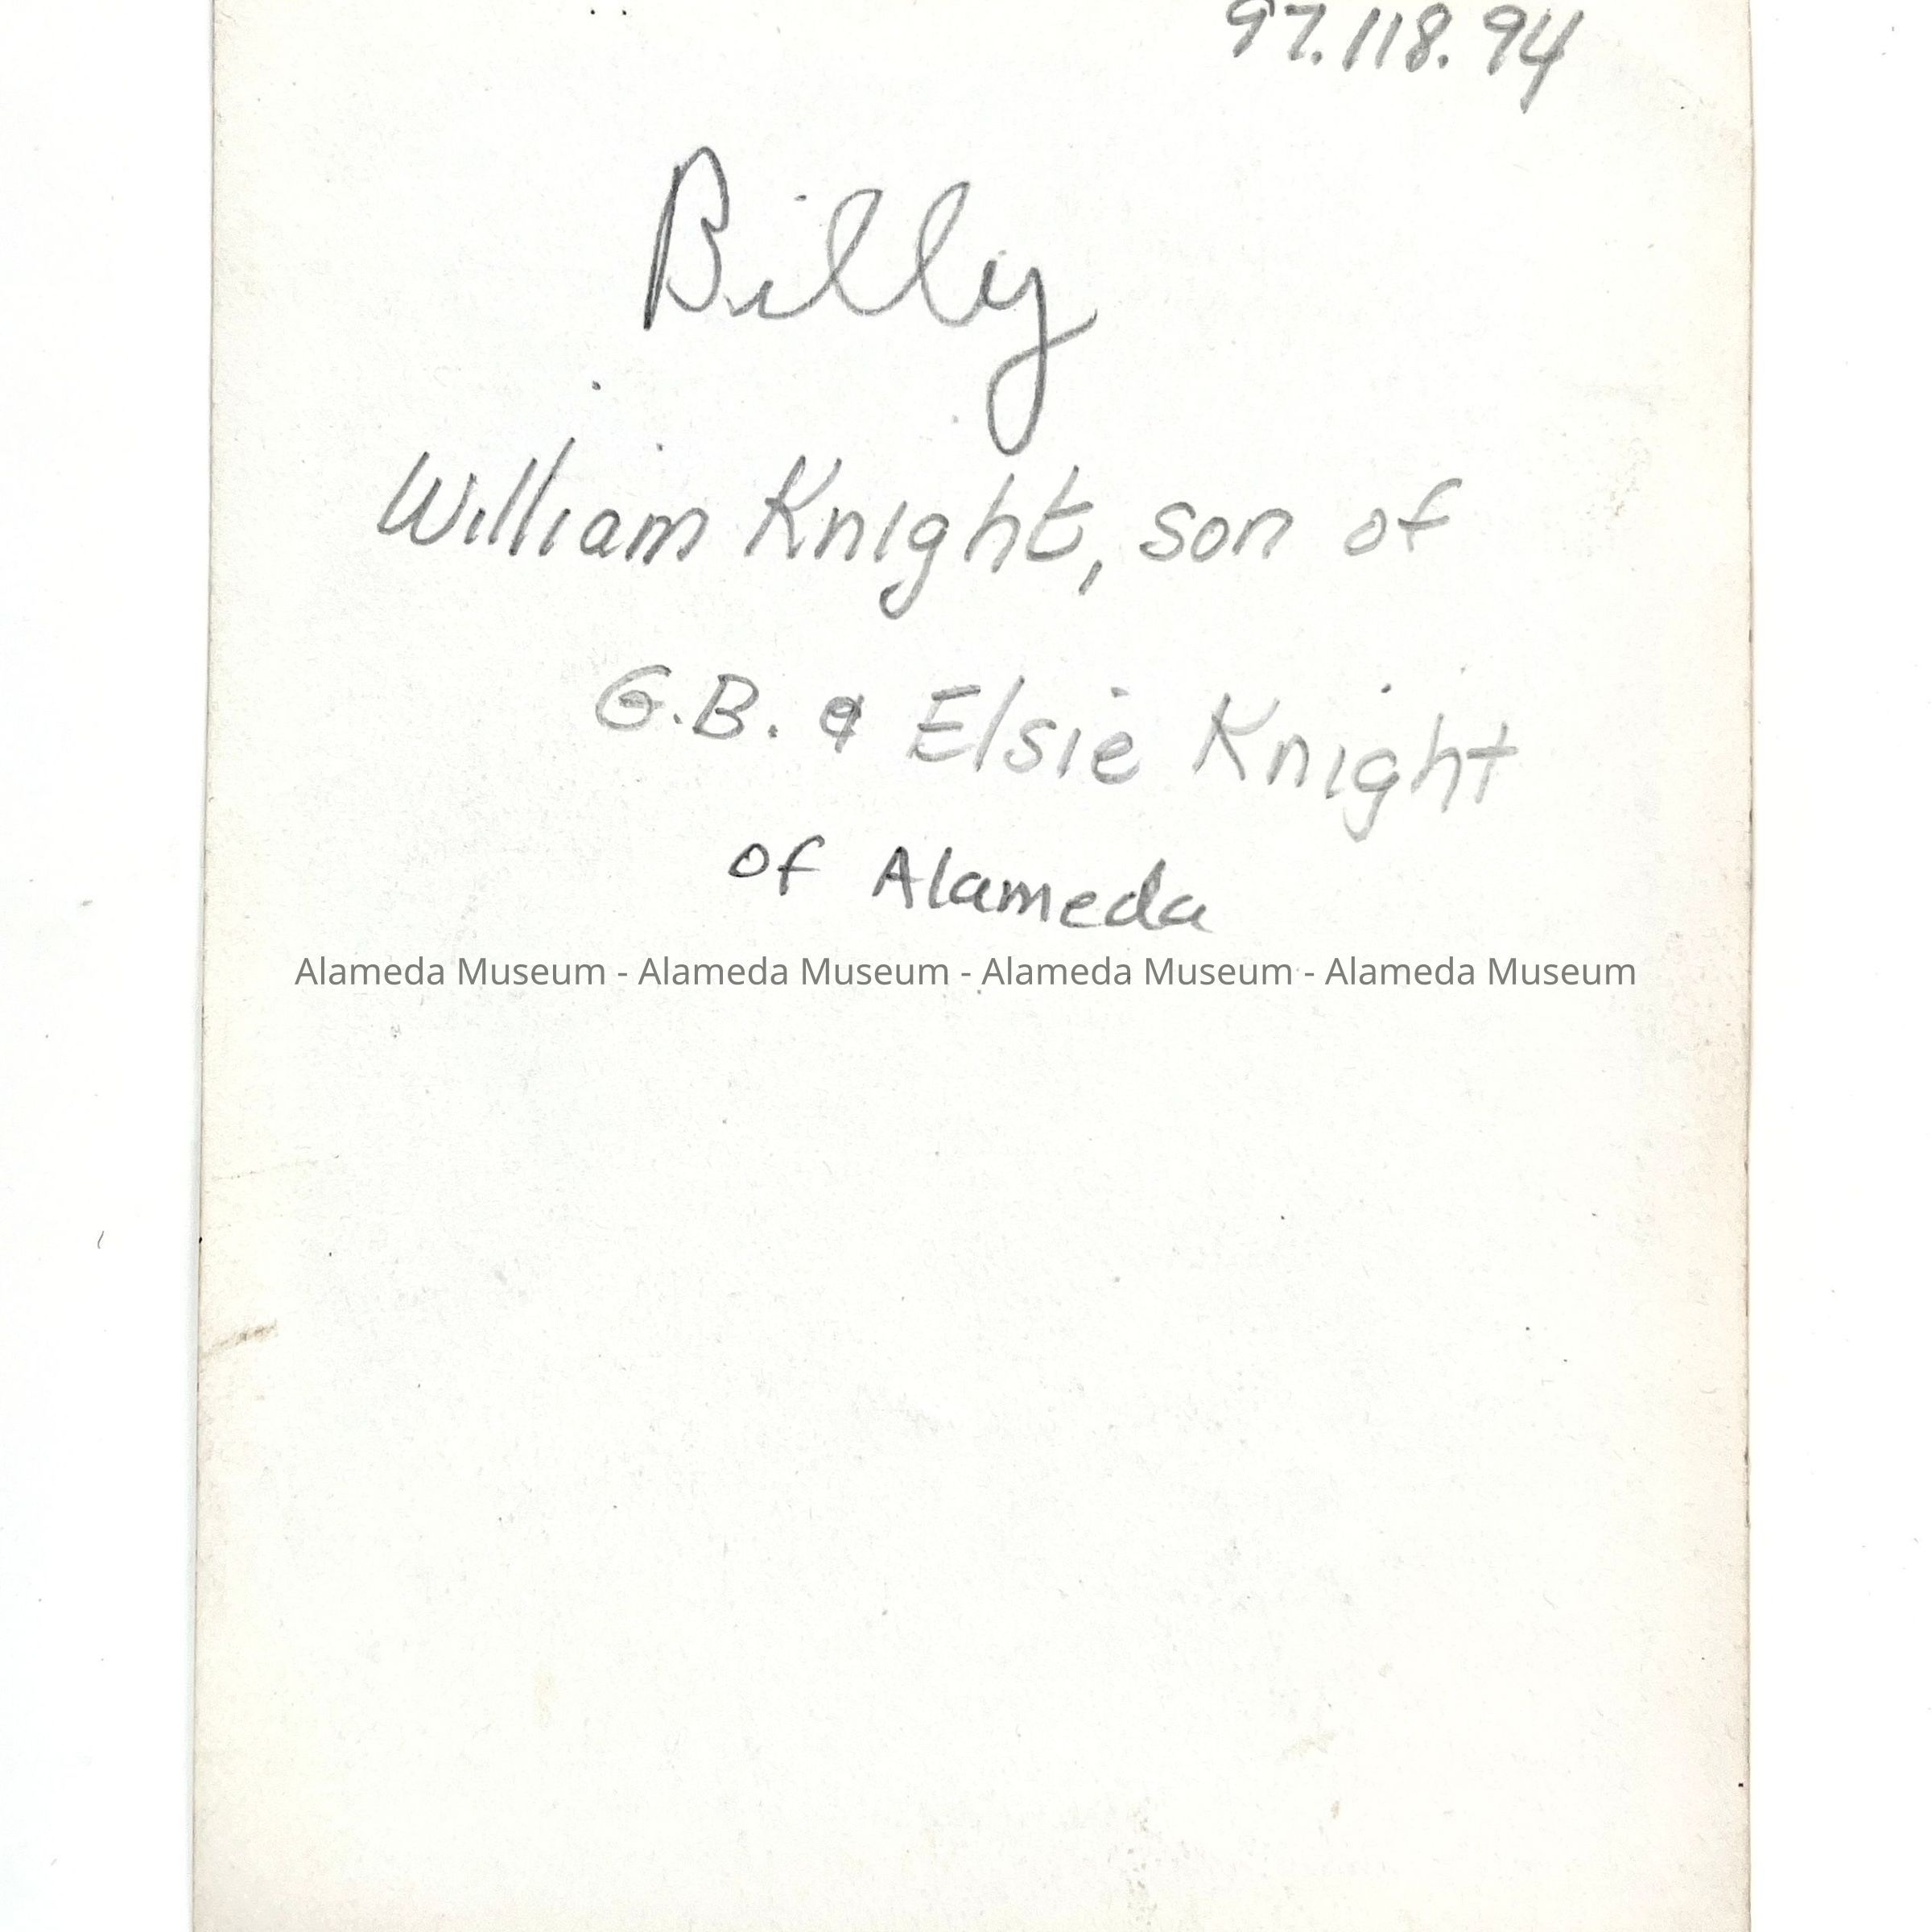 97.118.94
Billy
William Knight, son of
G.B. & Elsie Knight
of Alameda
Alameda Museum - Alameda Museum - Alameda Museum - Alameda Museum